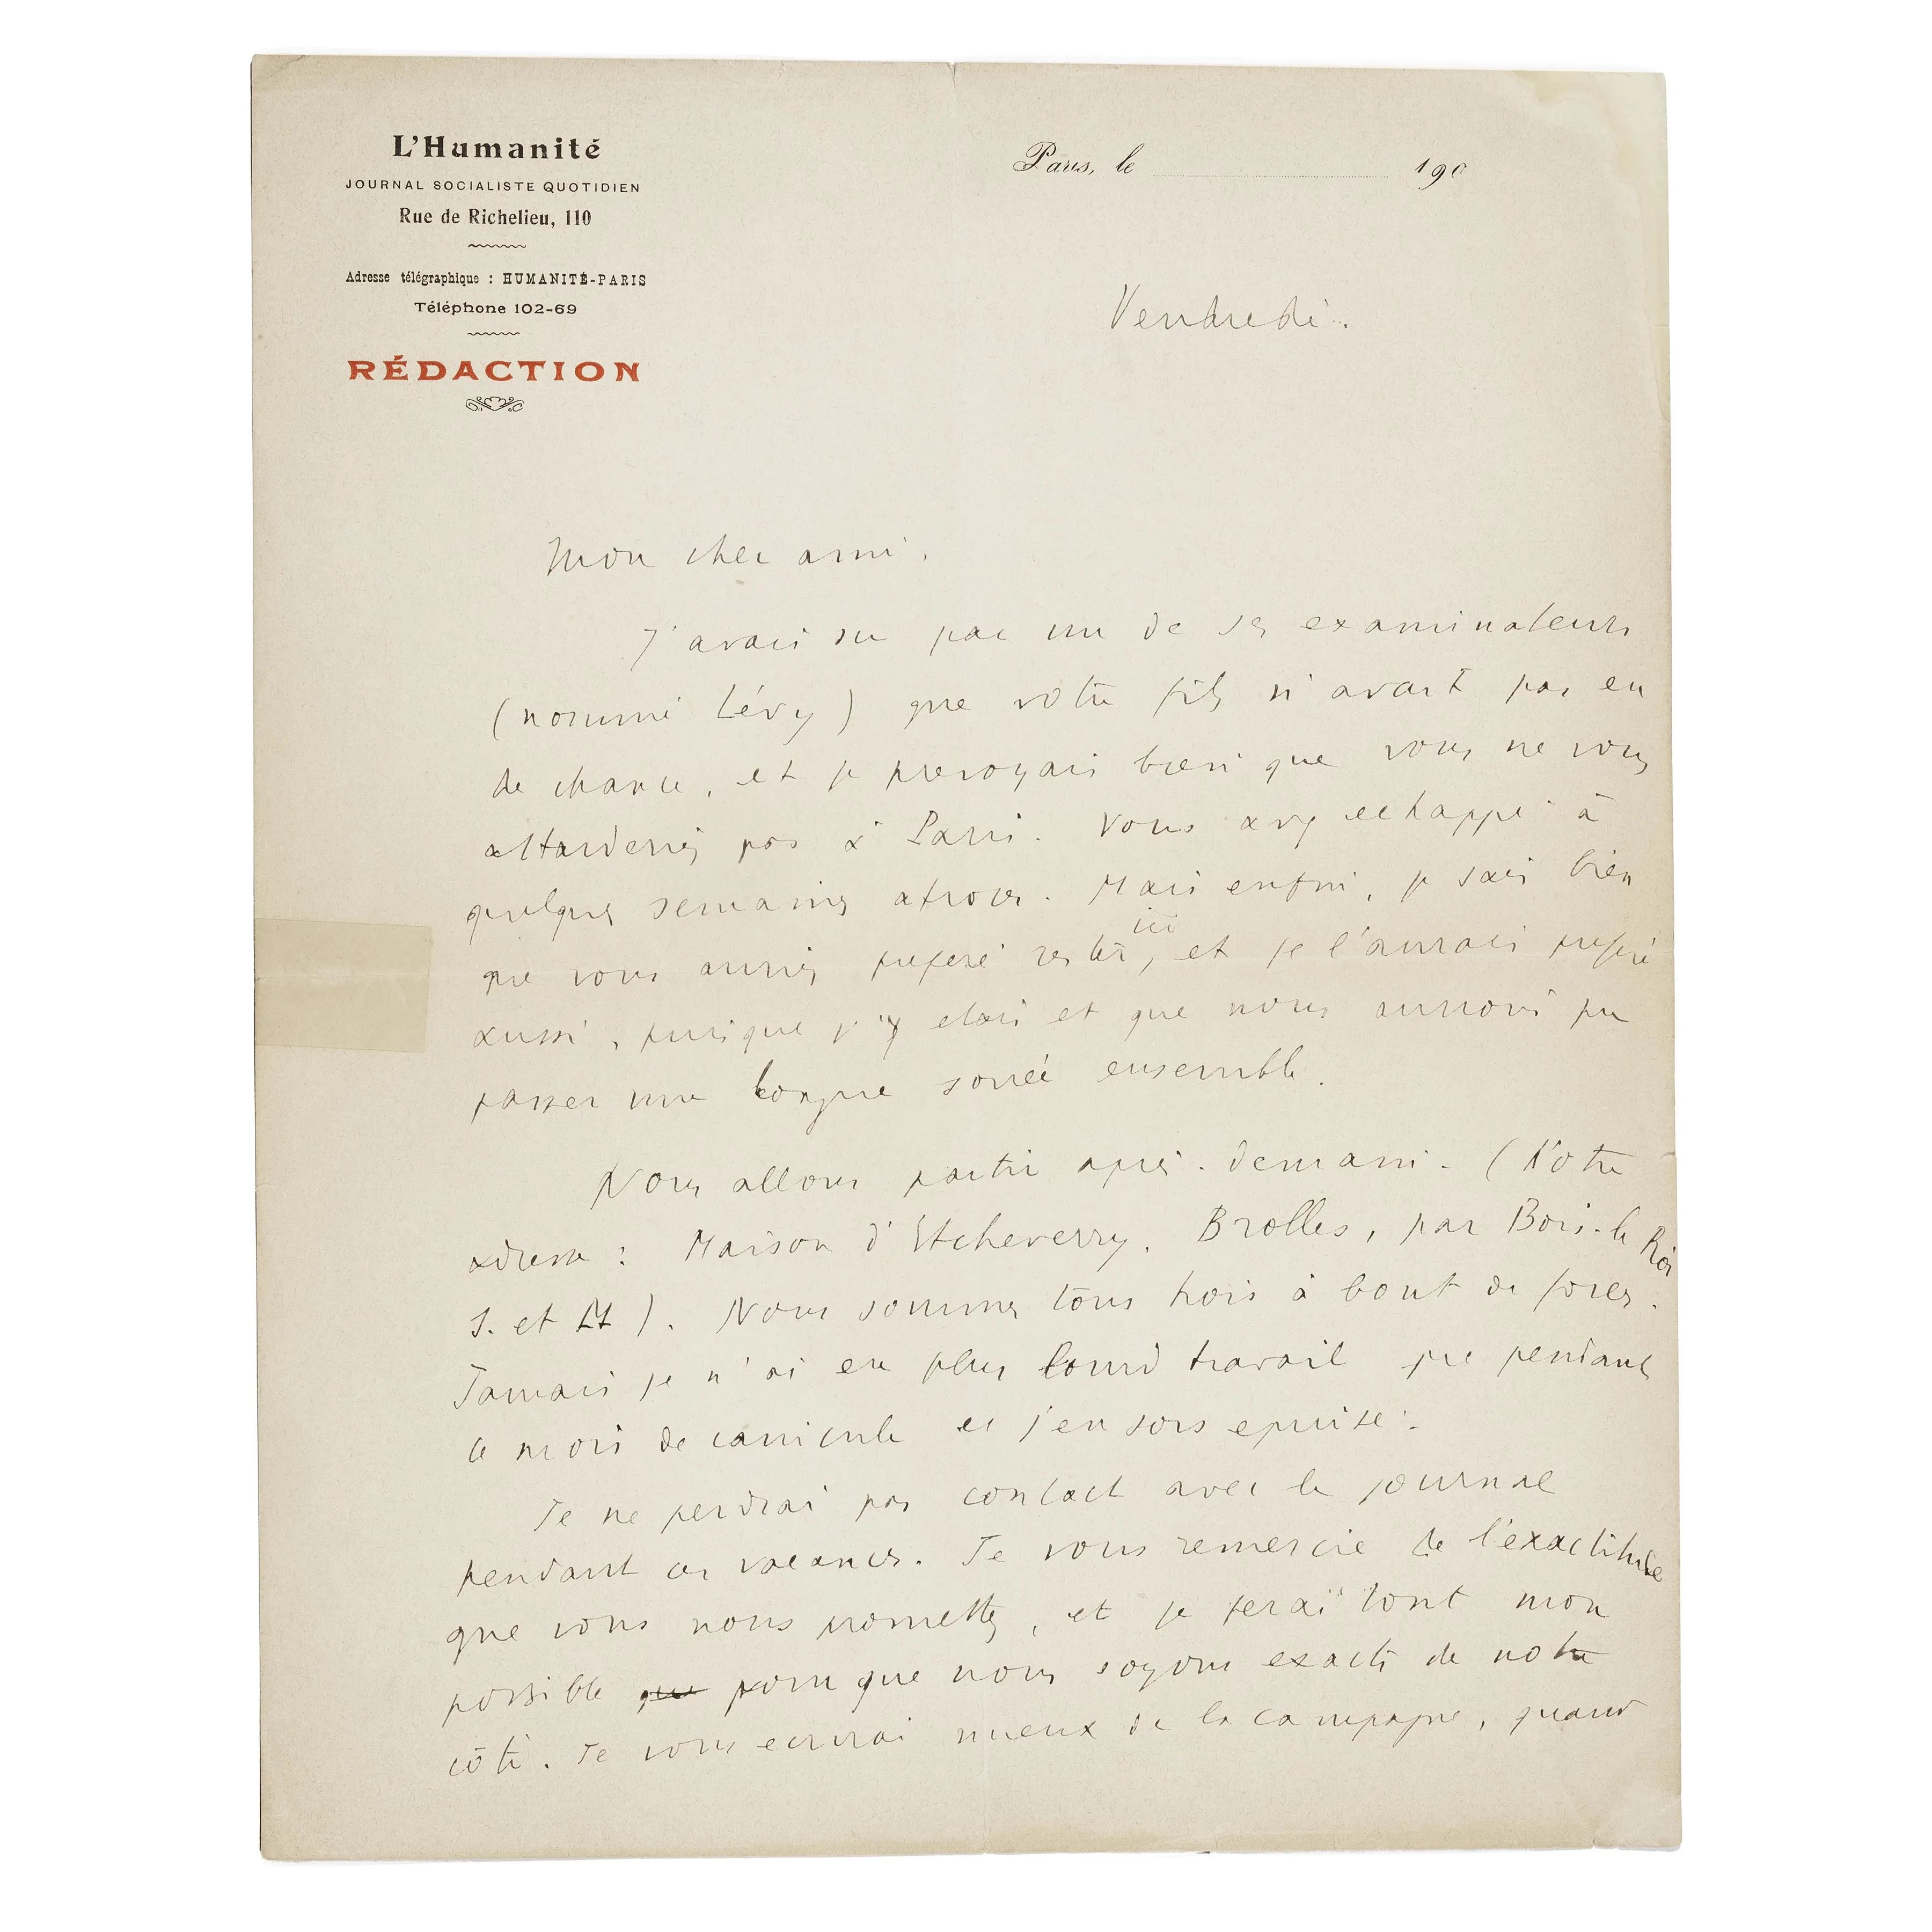 L'Humanité
JOURNAL SOCIALISTE QUOTIDIEN
Rue de Richelieu, 110
Adresse télégraphique : HUMANITÉ-PARIS
Téléphone 102-69
RÉDACTION
Paris, le 190
Vendredi.
Mon cher ami,
J'avais su par un de ses examinateurs
(nommé Lévy) que votre fils n'avait pas eu
de chance, et je prevoyais bien que vous ne vous
attarderiez pas à Paris. Vous avez echappé à
quelques semaines atroces. Mais enfin, je sais bien
que vous auriez preferé rester ici, et je l'aurais preferé
aussi, puisque j'y etais et que nous aurions pu
passer une longue soirée ensemble.
Nous allons partir après-demain. (Notre
adresse : Maison d'Etcheverry, Brolles, par Bois-le Roi
S. et M). Nous sommes tous trois à bout de forces.
Jamais je n'ai eu plus lourd travail que pendant
ce mois de canicule et j'en sors epuisé.
Je ne perdrai pas contact avec le journal
pendant ces vacances. Je vous remercie de l'exactitude
que vous nous promettez, et je ferai tout mon
possible que pour que nous soyons exacts de notre
côté. Je vous ecrirai mieux de la campagne, quand